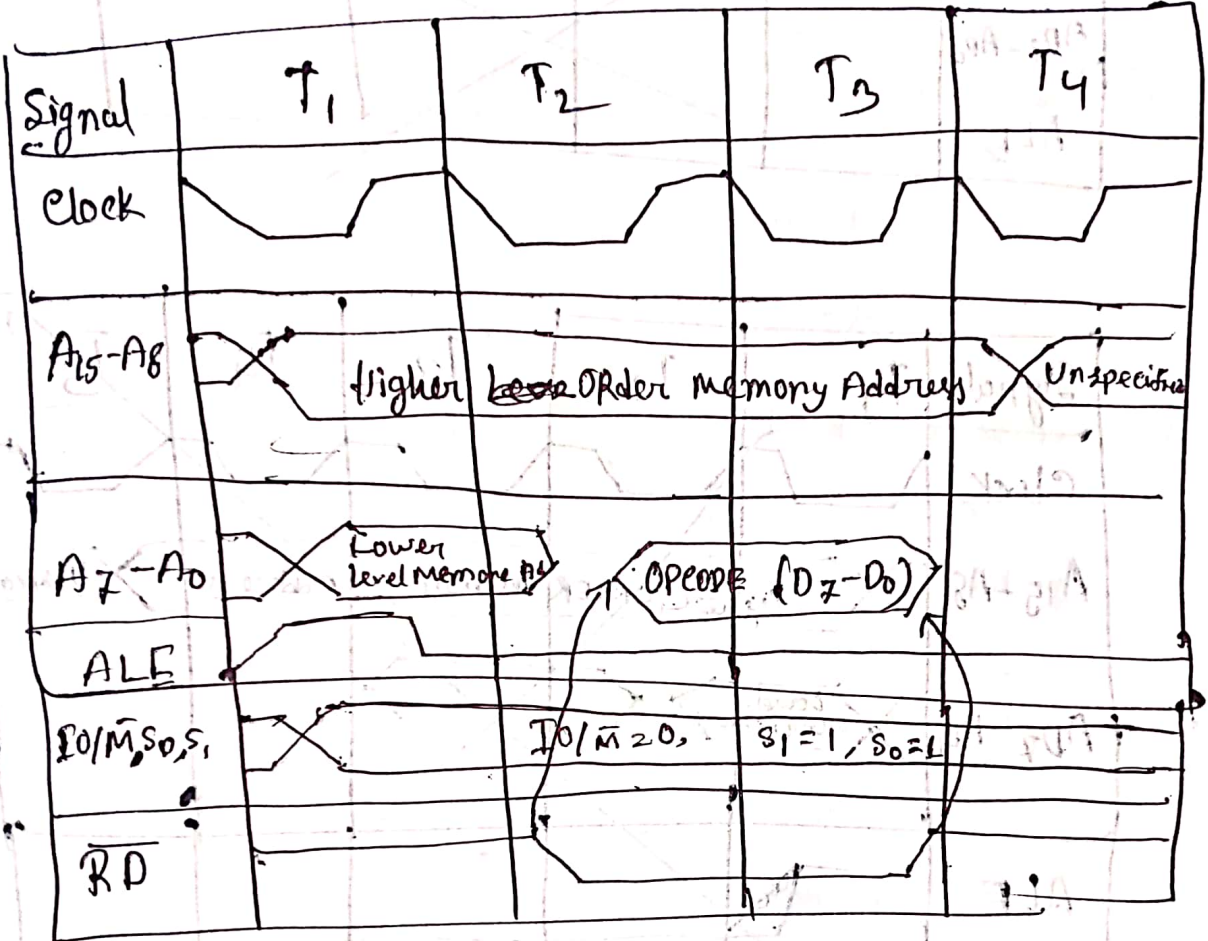 Signal T₁ T₂ T₃ T₄
Clock
A₁₅-A₈ Higher ORder Memory Address Unspecified
A₇-A₀ Lower
level Memore Ad OPCODE (D₇-D₀)
ALE
IO/M̄,S₀,S₁ IO/M̄=0, S₁=1, S₀=1
R̅D̅